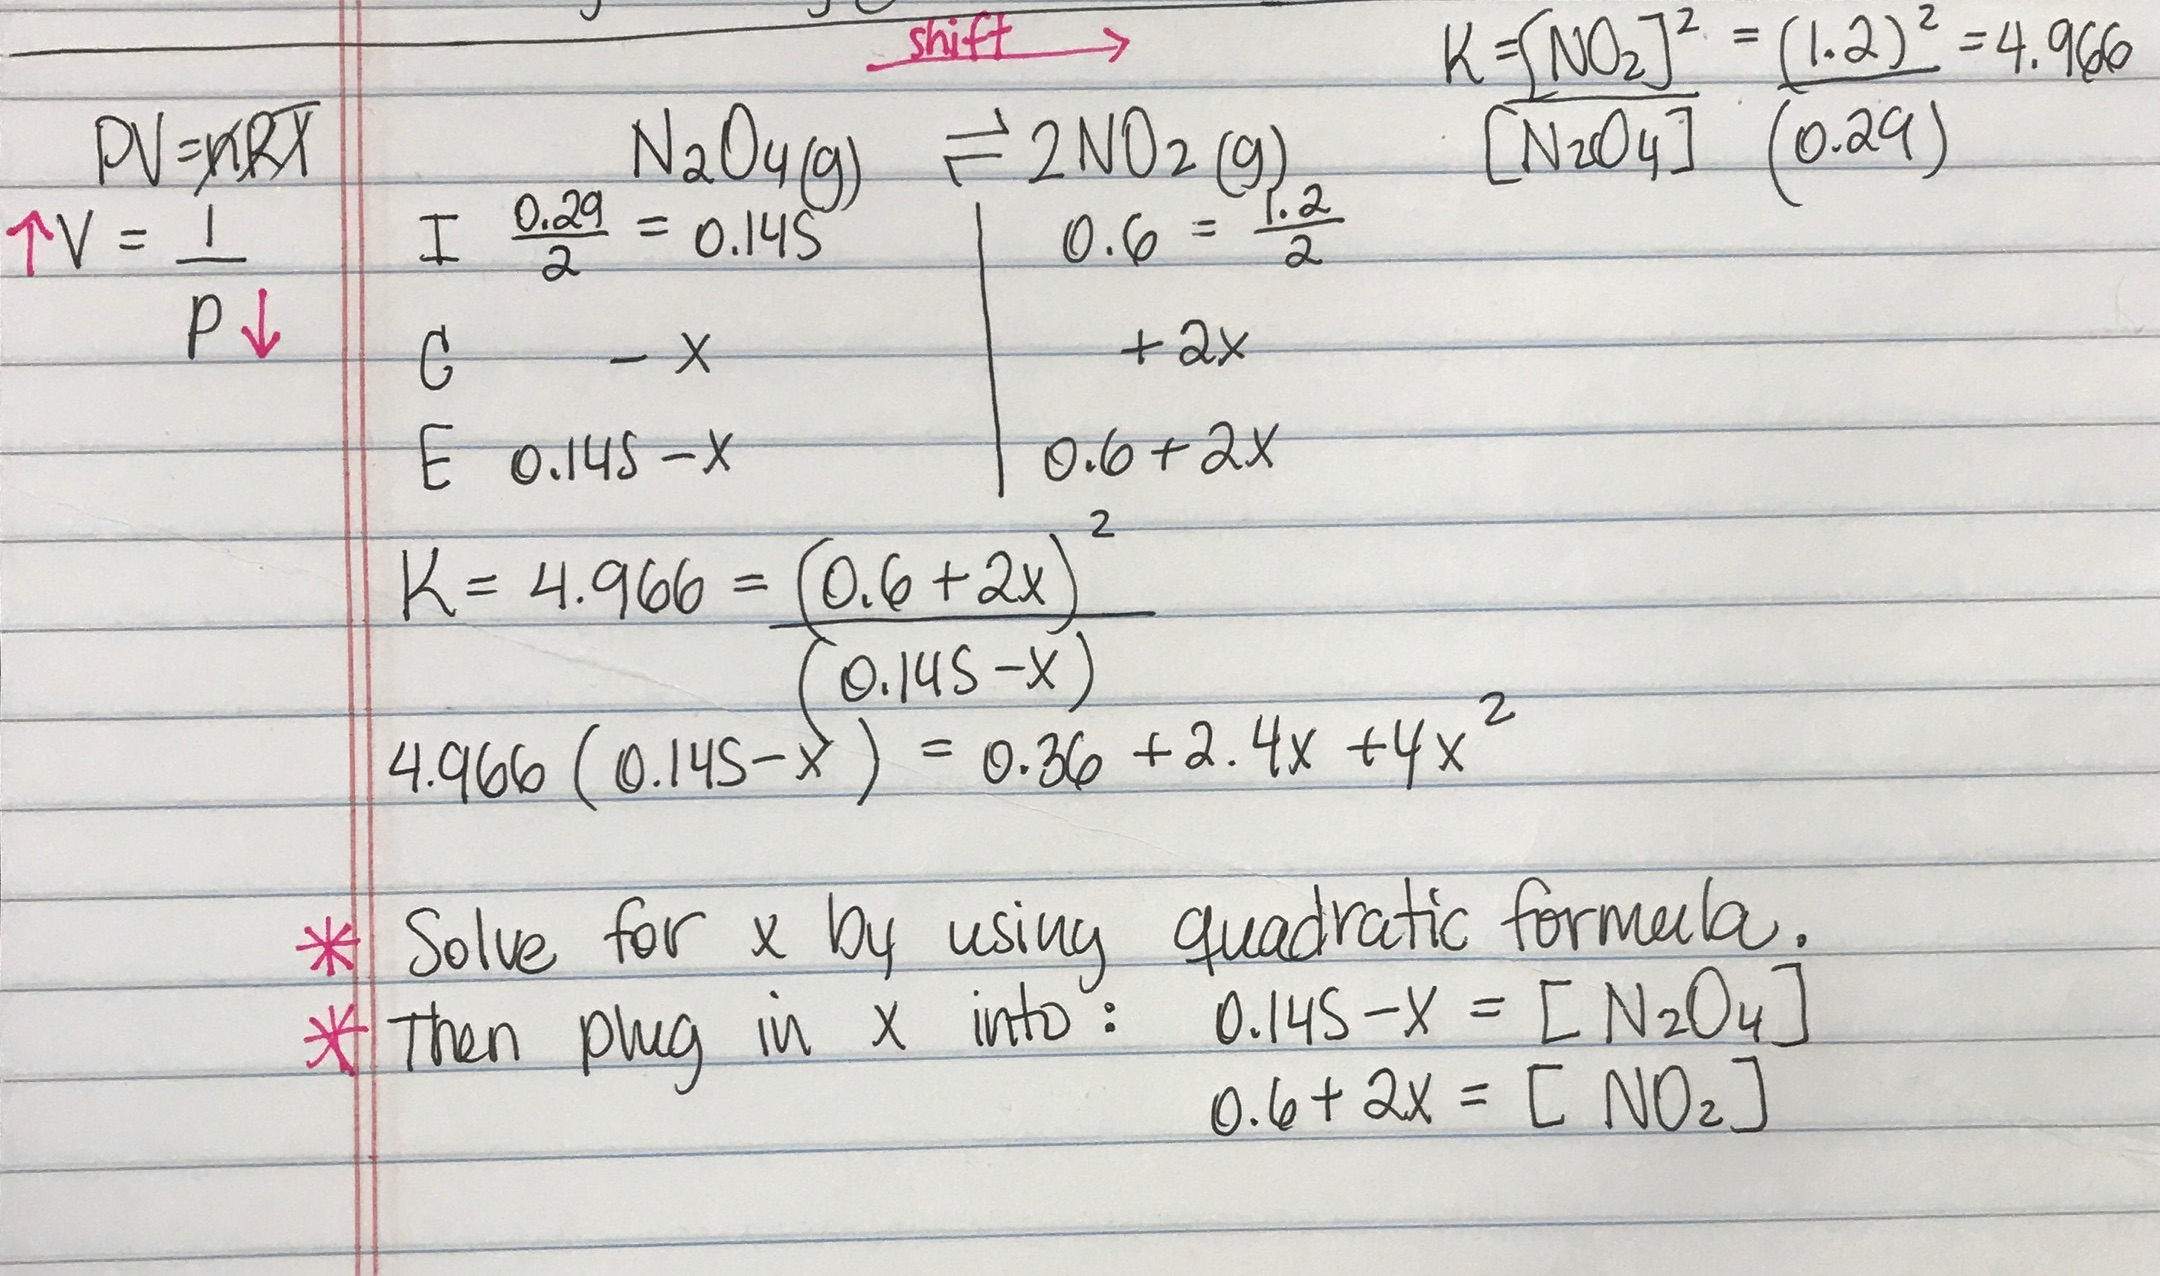 shift →
K = [NO₂]² / [N₂O₄] = (1.2)² / (0.29) = 4.966
PV = nRT
↑V = 1 / P↓
N₂O₄(g) ⇌ 2NO₂(g)
I 0.29/2 = 0.145 | 0.6 = 1.2/2
C - x | + 2x
E 0.145 - x | 0.6 + 2x
K = 4.966 = (0.6 + 2x)² / (0.145 - x)
4.966 (0.145 - x) = 0.36 + 2.4x + 4x²
* Solve for x by using quadratic formula.
* Then plug in x into: 0.145 - x = [N₂O₄]
0.6 + 2x = [NO₂]